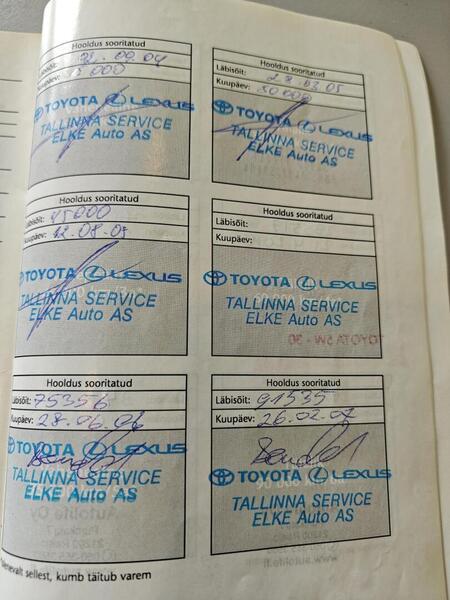 Hooldus sooritatud
Läbisõit:
Kuupäev: 15 000
TOYOTA LEXUS
TALLINNA SERVICE
ELKE Auto AS
Hooldus sooritatud
Läbisõit: 28.03.05
Kuupäev: 30000
TOYOTA LEXUS
TALLINNA SERVICE
ELKE Auto AS
Hooldus sooritatud
Läbisõit: 45000
Kuupäev:
TOYOTA LEXUS
TALLINNA SERVICE
ELKE Auto AS
Hooldus sooritatud
Läbisõit:
Kuupäev:
TOYOTA LEXUS
TALLINNA SERVICE
ELKE Auto AS
TOYOTA 5W - 30
Hooldus sooritatud
Läbisõit: 75356
Kuupäev: 28.06.06
TOYOTA LEXUS
TALLINNA SERVICE
ELKE Auto AS
Hooldus sooritatud
Läbisõit: 91535
Kuupäev: 26.02.07
TOYOTA LEXUS
TALLINNA SERVICE
ELKE Auto AS
sellest, kumb täitub varem